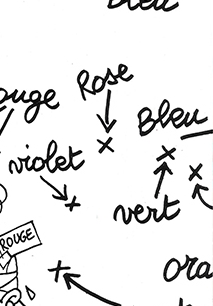 Bleu
Rose
ouge
Bleu
violet
vert
ROUGE
ora